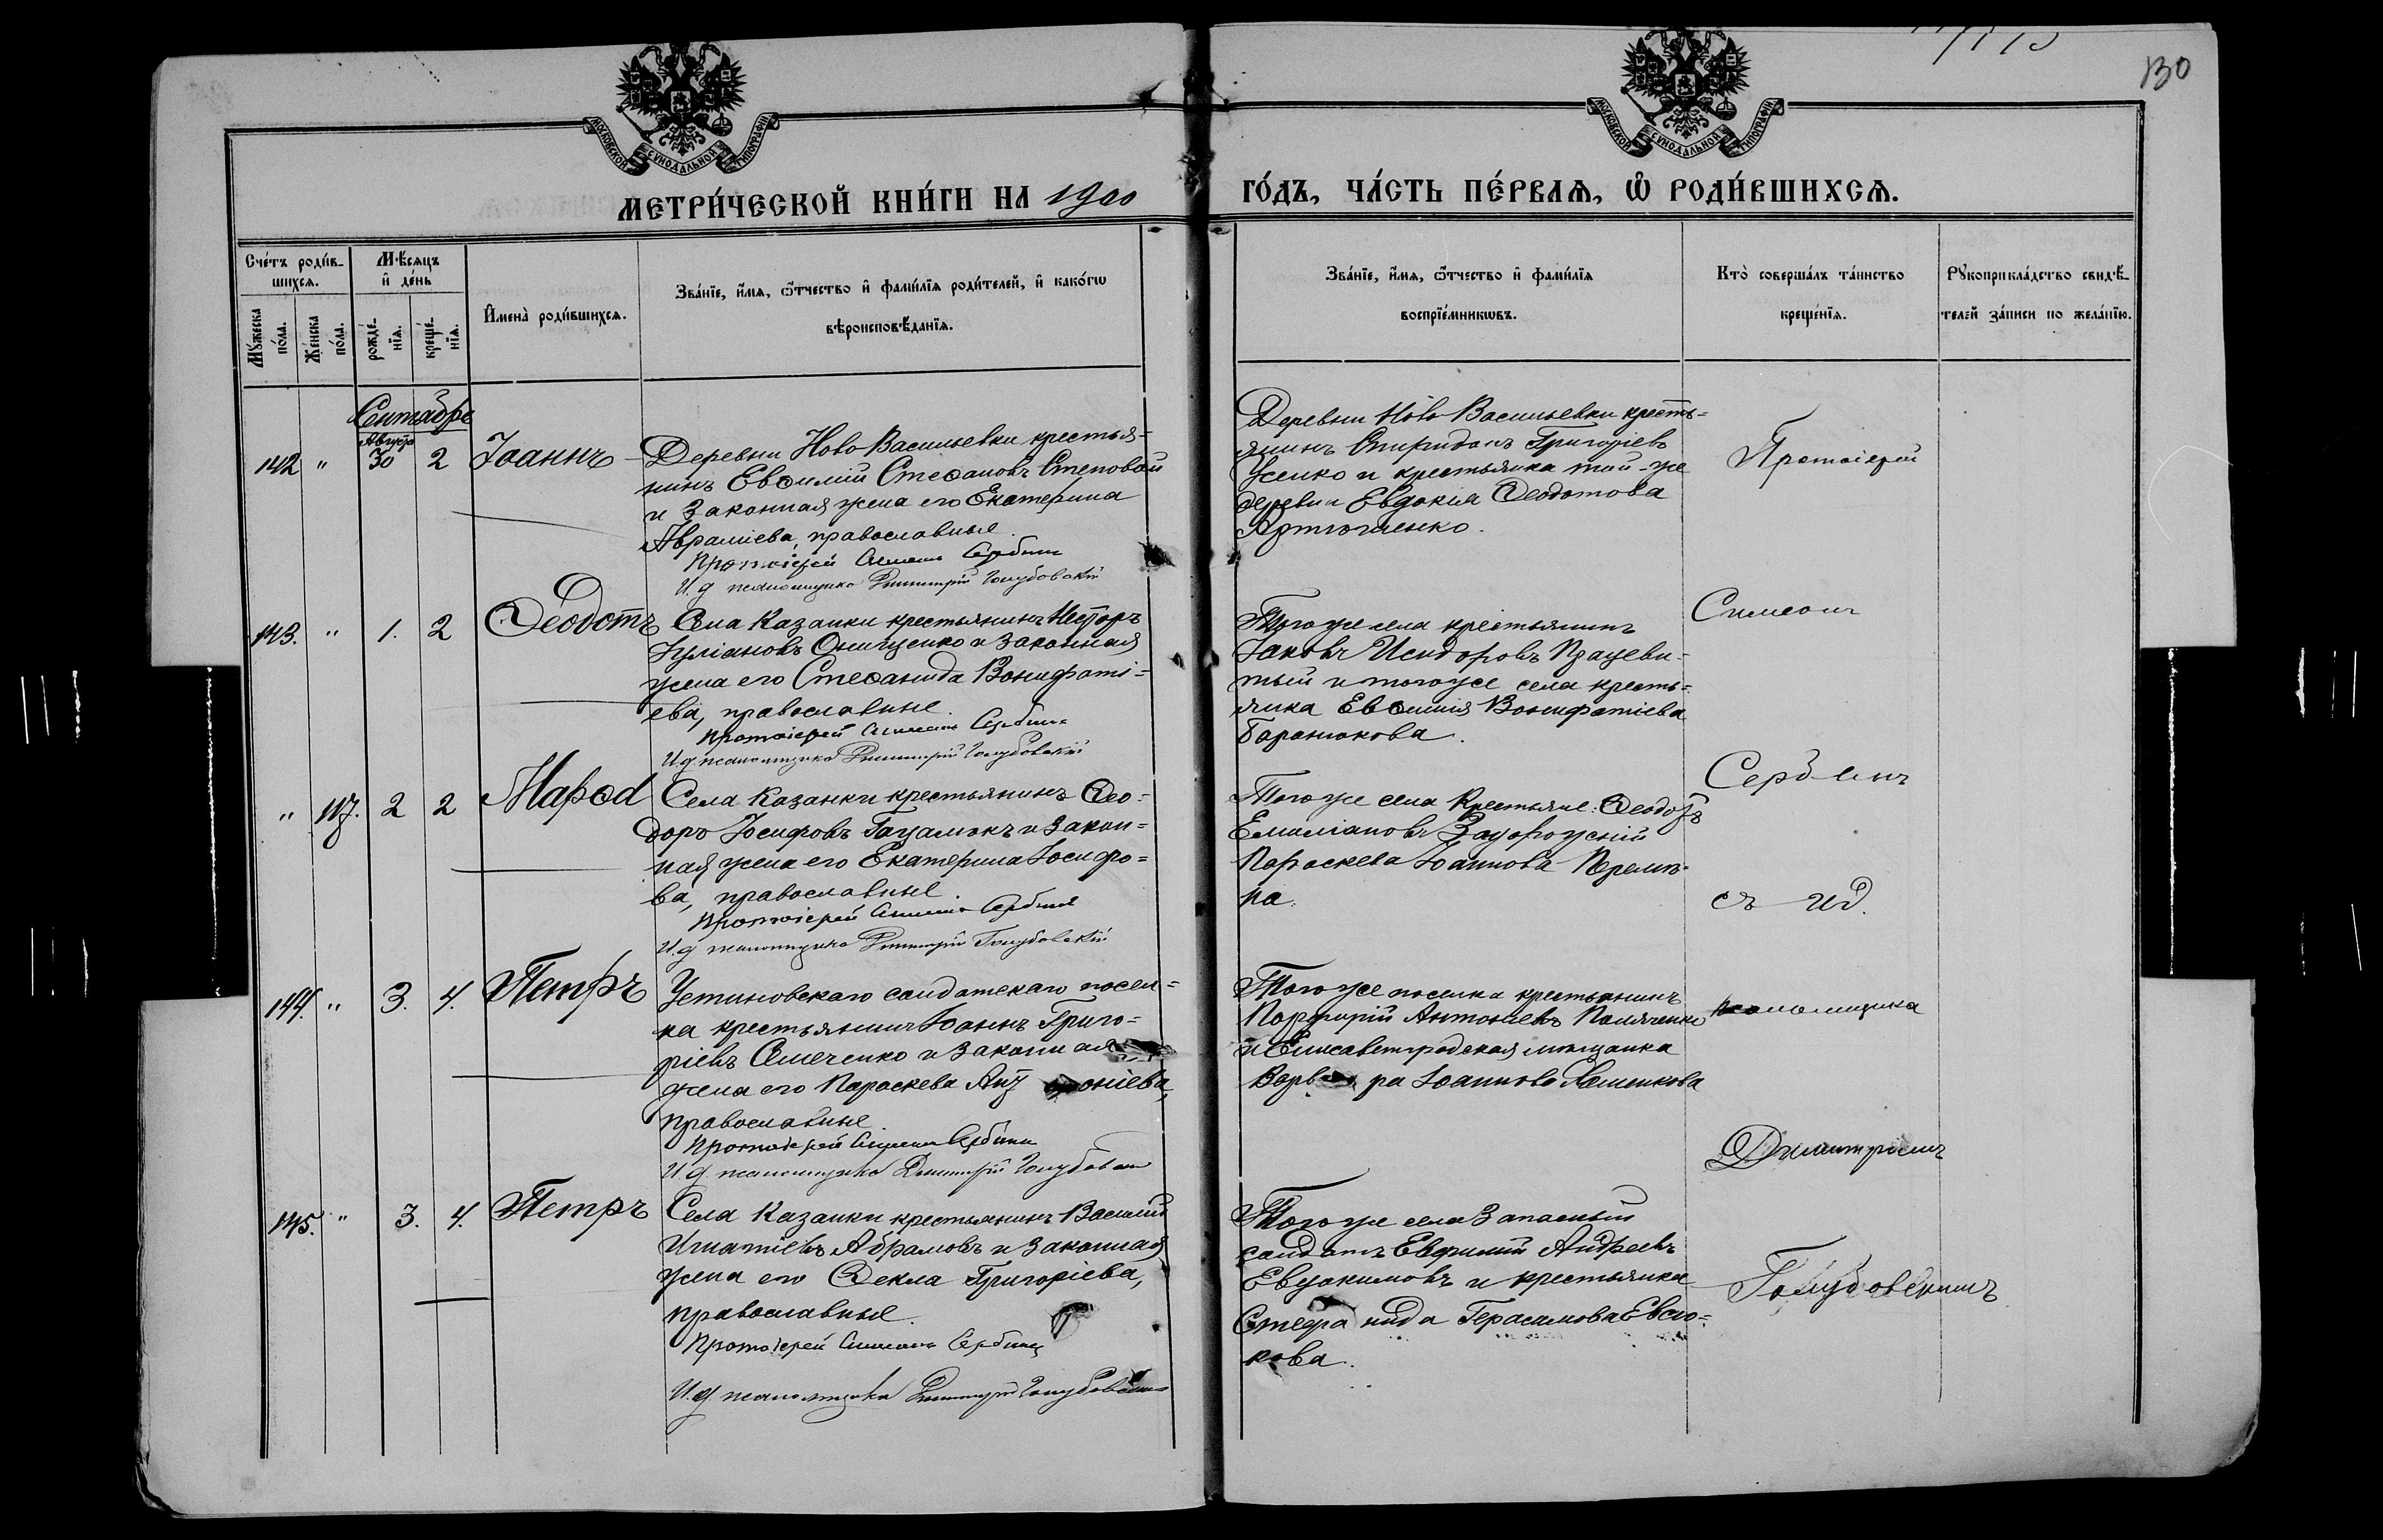 130
МОСКОВСКОЙ СѴНОДАЛЬНОЙ ТИПОГРАФІИ
МОСКОВСКОЙ СѴНОДАЛЬНОЙ ТИПОГРАФІИ
МЕТРИ́ЧЕСКОЙ КНИ́ГИ НА 1900
ГО́ДЪ, ЧА́СТЬ ПЕ́РВАѦ, Ѽ РОДИ́ВШИХСѦ.
Сче́тъ роди́в-
шихсѧ.
Мꙋ́жеска по́ла.
Же́нска по́ла.
Мѣ́сѧцъ и҆ де́нь
рожде́-нїѧ.
креще́-нїѧ.
И҆мена̀ роди́вшихсѧ.
Зва́нїе, и҆́мѧ, ѻ҆́тчество и҆ фами́лїѧ роди́телей, и҆ како́гѡ
вѣроисповѣ́данїѧ.
Зва́нїе, и҆́мѧ, ѻ҆́тчество и҆ фами́лїѧ
воспрїе́мникѡвъ.
Кто̀ соверша́лъ та́инство
креще́нїѧ.
Рꙋкоприкла́дство свидѣ́-
телей за́писи по жела́нїю.
Сентябрь
142 " Августа 30 2 Іоаннъ
Деревни Ново-Васильевки крестья-
нинъ Евѳимій Стеѳановъ Степовой
и законная жена его Екатерина
Авраміева, православные.
Протоіерей Симеонъ Сербинъ
И. д. псаломщика Димитрій Голубовскій
Деревни Ново-Васильевки кресть-
янинъ Спиридонъ Григоріевъ
Усенко и крестьянка той-же
деревни Евдокія Ѳеодотова
Артюшенко.
Протоіерей
143. " 1. 2 Ѳеодотъ
Села Казанки крестьянинъ Несторъ
Іуліановъ Онищенко и законная
жена его Стеѳанида Вонифаті-
ева, православные.
Протоіерей Симеонъ Сербинъ
И. д. псаломщика Димитрій Голубовскій
Того же села крестьянинъ
Іаковъ Исидоровъ
и того же села кресть-
янка Евѳимія Вонифатіева
Баранюкова.
Симеонъ
" 2 2
Села Казанки крестьянинъ Ѳео-
доръ Іосифовъ и закон-
ная жена его Екатерина Іосифо-
ва, православные.
Протоіерей Симеонъ Сербинъ
И. д. псаломщика Димитрій Голубовскій
Того же села крестьяне: Ѳеодоръ
Емиліановъ Задорожній
Параскева Іоаннова
на.
Сербинъ
съ и. д.
144. " 3. 4. Петръ
Устиновскаго солдатскаго посел-
ка крестьянинъ Іоаннъ Григо-
ріевъ Семченко и законная
жена его Параскева Антоніева,
православные.
Протоіерей Симеонъ Сербинъ
И. д. псаломщика Димитрій Голубовскій
Того же поселка крестьянинъ
Порфирій Антоніевъ
и Елисаветградская мѣщанка
Варвара Іоаннова
псаломщика
Димитріемъ
145. " 3. 4. Петръ
Села Казанки крестьянинъ Василій
Игнатіевъ Абрамовъ и законная
жена его Ѳекла Григоріева,
православные.
Протоіерей Симеонъ Сербинъ
И. д. псаломщика Димитрій Голубовскій
Того же села запасный
солдатъ Евфимій Андреевъ
Евдокимовъ и крестьянка
Стефанида Герасимова Евсю-
кова.
Голубовскимъ